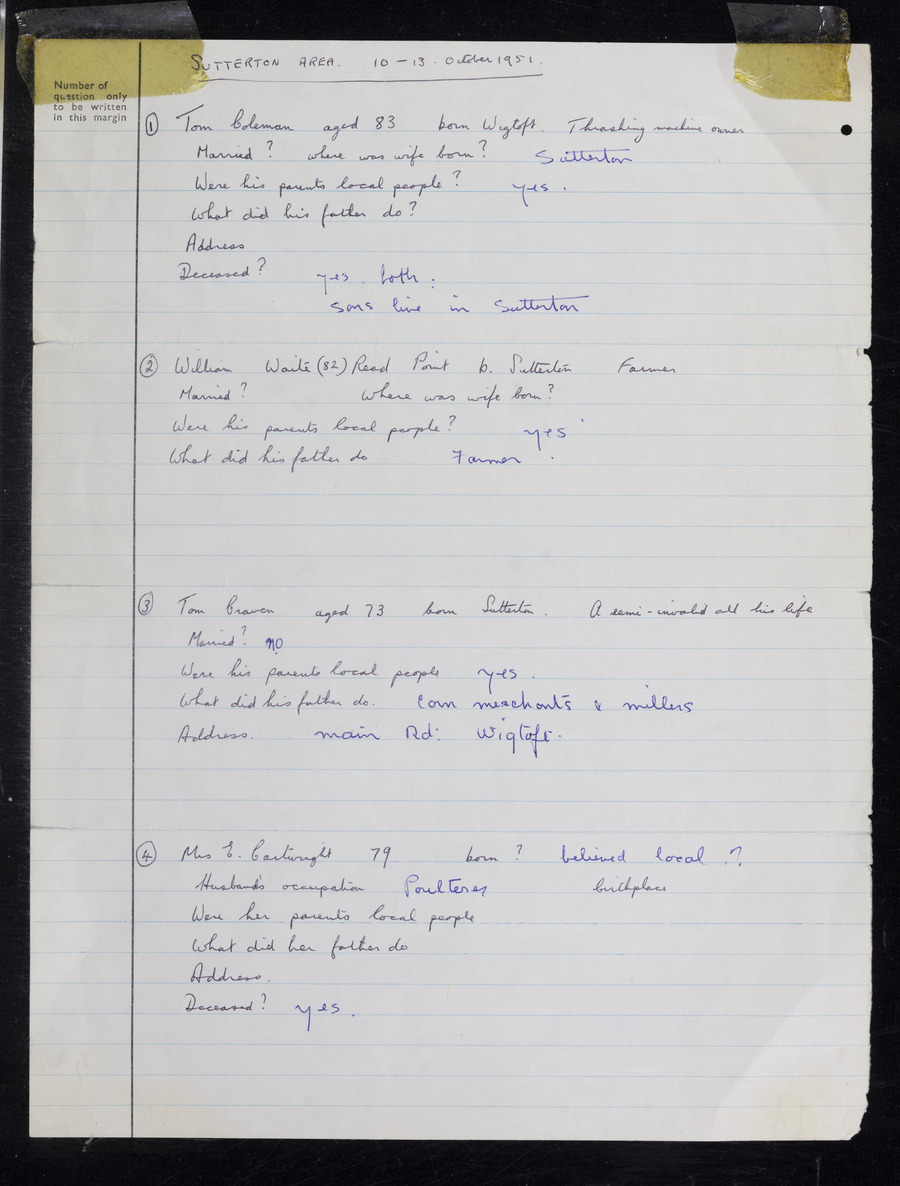 SUTTERTON AREA. 10-13. October 1951.
Number of
question only
to be written
in this margin
① Tom Coleman aged 83 born Wigtoft. Thrashing machine owner
Married? where was wife born? Sutterton
Were his parents local people? yes.
What did his father do?
Address
Deceased? yes. both.
sons live in Sutterton
② William Waite (82) Read Point b. Sutterton Farmer
Married? Where was wife born?
Were his parents local people? yes
What did his father do Farmer.
③ Tom Craven aged 73 born Sutterton. A semi-invalid all his life
Married? no
Were his parents local people yes.
What did his father do. Corn merchants & millers
Address. main Rd: Wigtoft.
④ Mrs E. Cartwright 79 born? believed local.?
Husband's occupation Poulterer birthplace
Were her parents local people
What did her father do
Address.
Deceased? yes.